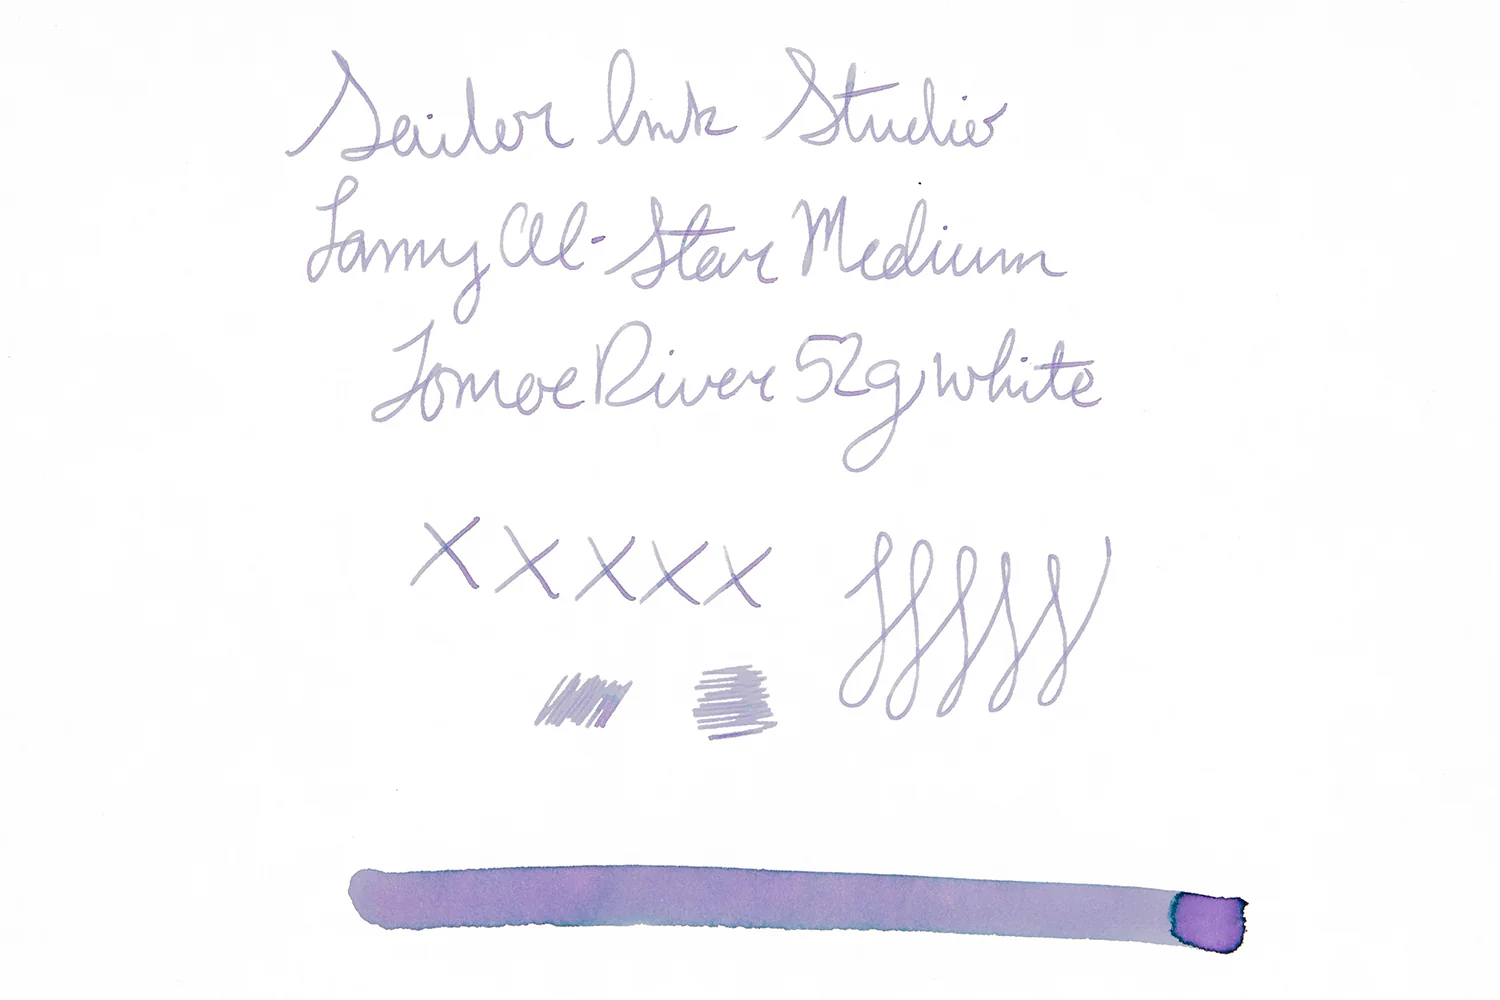 Sailor Ink Studio
Lamy Al-Star Medium
Tomoe River 52g white
X X X X X